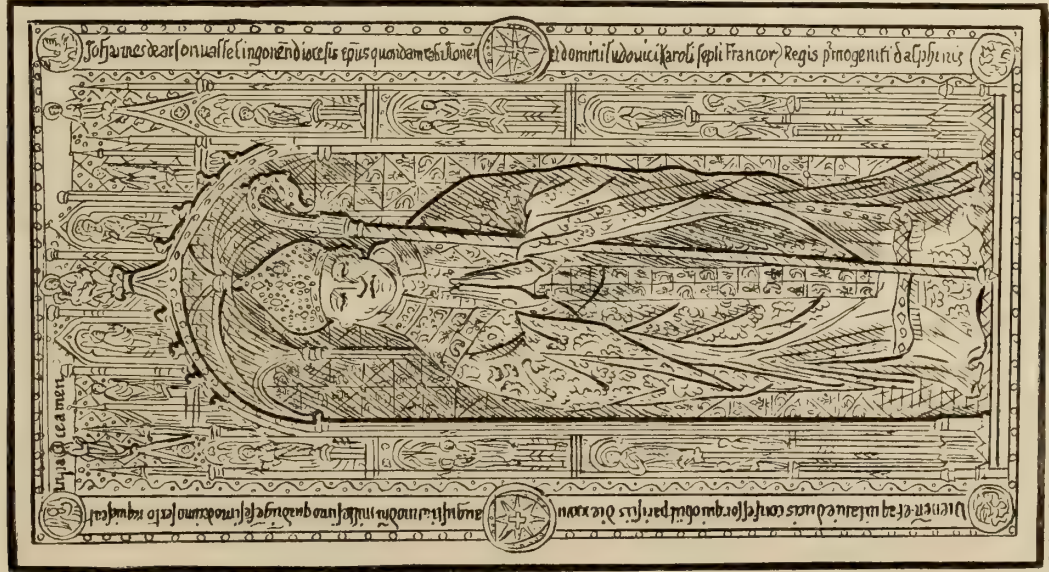 Johannes de arsonualle lingoneñ diocesis ep̃us quondam cabilonen̄
et domini ludouici karoli septi Francorꝝ Regis p̃mogeniti dalphinis
vieneñ et aquitanie ducis confessor qui obiit parisius die xxvii
augusti anno dnī millesimo quadrigetesimodecimo sexto requiescat
in pace amen